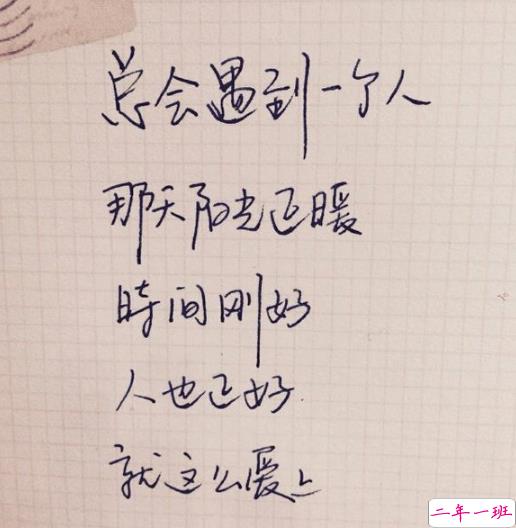 总会遇到一个人
那天阳光正暖
時间刚好
人也正好
就这么爱上
二年一班